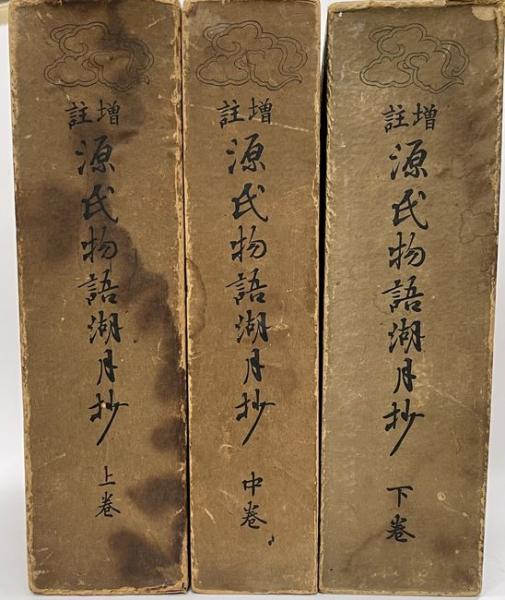 増註
源氏物語湖月抄
上巻
増註
源氏物語湖月抄
中巻
増註
源氏物語湖月抄
下巻